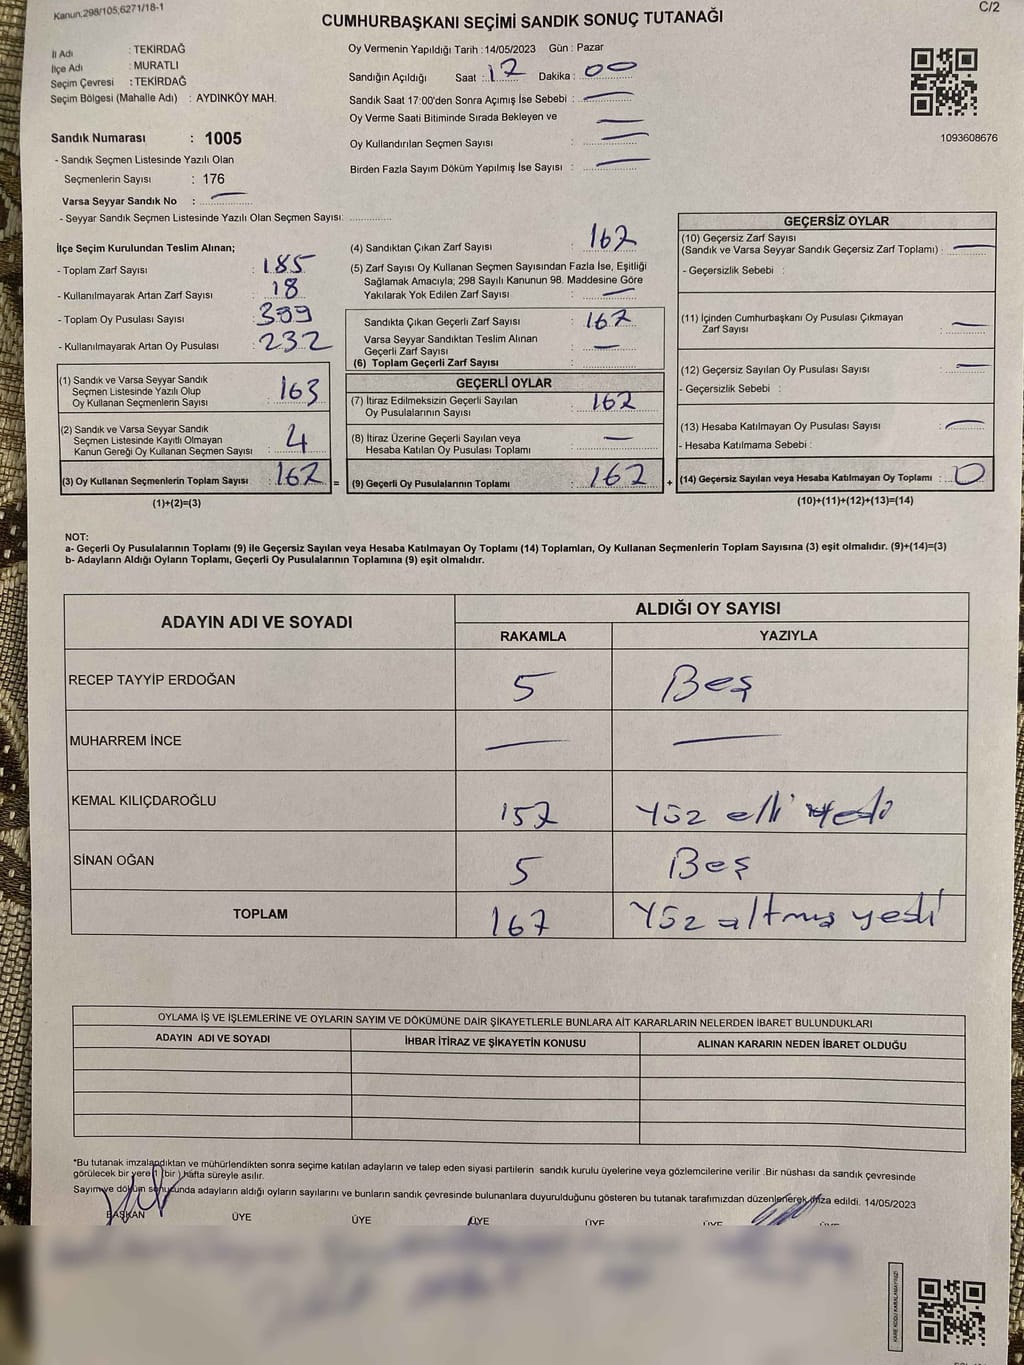 Kanun.298/105,6271/18-1
C/2
CUMHURBAŞKANI SEÇİMİ SANDIK SONUÇ TUTANAĞI
İl Adı : TEKİRDAĞ
İlçe Adı : MURATLI
Seçim Çevresi : TEKİRDAĞ
Seçim Bölgesi (Mahalle Adı) : AYDINKÖY MAH.
Sandık Numarası : 1005
- Sandık Seçmen Listesinde Yazılı Olan
Seçmenlerin Sayısı : 176
Varsa Seyyar Sandık No : —
- Seyyar Sandık Seçmen Listesinde Yazılı Olan Seçmen Sayısı: ..............
Oy Vermenin Yapıldığı Tarih :14/05/2023 Gün : Pazar
Sandığın Açıldığı Saat : 17 Dakika : 00
Sandık Saat 17:00'den Sonra Açımış İse Sebebi : —
Oy Verme Saati Bitiminde Sırada Bekleyen ve —
Oy Kullandırılan Seçmen Sayısı : —
Birden Fazla Sayım Döküm Yapılmış İse Sayısı : —
1093608676
İlçe Seçim Kurulundan Teslim Alınan;
- Toplam Zarf Sayısı : 185
- Kullanılmayarak Artan Zarf Sayısı : 18
- Toplam Oy Pusulası Sayısı : 399
- Kullanılmayarak Artan Oy Pusulası : 232
(1) Sandık ve Varsa Seyyar Sandık
Seçmen Listesinde Yazılı Olup
Oy Kullanan Seçmenlerin Sayısı : 163
(2) Sandık ve Varsa Seyyar Sandık
Seçmen Listesinde Kayıtlı Olmayan
Kanun Gereği Oy Kullanan Seçmen Sayısı : 4
(3) Oy Kullanan Seçmenlerin Toplam Sayısı : 167 =
(1)+(2)=(3)
(4) Sandıktan Çıkan Zarf Sayısı : 167
(5) Zarf Sayısı Oy Kullanan Seçmen Sayısından Fazla İse, Eşitliği
Sağlamak Amacıyla; 298 Sayılı Kanunun 98. Maddesine Göre
Yakılarak Yok Edilen Zarf Sayısı : —
Sandıkta Çıkan Geçerli Zarf Sayısı : 167
Varsa Seyyar Sandıktan Teslim Alınan
Geçerli Zarf Sayısı : —
(6) Toplam Geçerli Zarf Sayısı :
GEÇERLİ OYLAR
(7) İtiraz Edilmeksizin Geçerli Sayılan
Oy Pusulalarının Sayısı : 167
(8) İtiraz Üzerine Geçerli Sayılan veya
Hesaba Katılan Oy Pusulası Toplamı : —
(9) Geçerli Oy Pusulalarının Toplamı : 167 +
GEÇERSİZ OYLAR
(10) Geçersiz Zarf Sayısı
(Sandık ve Varsa Seyyar Sandık Geçersiz Zarf Toplamı) : —
- Geçersizlik Sebebi :
(11) İçinden Cumhurbaşkanı Oy Pusulası Çıkmayan
Zarf Sayısı : —
(12) Geçersiz Sayılan Oy Pusulası Sayısı : —
- Geçersizlik Sebebi :
(13) Hesaba Katılmayan Oy Pusulası Sayısı : —
- Hesaba Katılmama Sebebi :
(14) Geçersiz Sayılan veya Hesaba Katılmayan Oy Toplamı : 0
(10)+(11)+(12)+(13)=(14)
NOT:
a- Geçerli Oy Pusulalarının Toplamı (9) ile Geçersiz Sayılan veya Hesaba Katılmayan Oy Toplamı (14) Toplamları, Oy Kullanan Seçmenlerin Toplam Sayısına (3) eşit olmalıdır. (9)+(14)=(3)
b- Adayların Aldığı Oyların Toplamı, Geçerli Oy Pusulalarının Toplamına (9) eşit olmalıdır.
ADAYIN ADI VE SOYADI ALDIĞI OY SAYISI
RAKAMLA YAZIYLA
RECEP TAYYİP ERDOĞAN 5 Beş
MUHARREM İNCE — —
KEMAL KILIÇDAROĞLU 157 Yüz elli yedi
SİNAN OĞAN 5 Beş
TOPLAM 167 Yüz altmış yedi
OYLAMA İŞ VE İŞLEMLERİNE VE OYLARIN SAYIM VE DÖKÜMÜNE DAİR ŞİKAYETLERLE BUNLARA AİT KARARLARIN NELERDEN İBARET BULUNDUKLARI
ADAYIN ADI VE SOYADI İHBAR İTİRAZ VE ŞİKAYETİN KONUSU ALINAN KARARIN NEDEN İBARET OLDUĞU
*Bu tutanak imzalandıktan ve mühürlendikten sonra seçime katılan adayların ve talep eden siyasi partilerin sandık kurulu üyelerine veya gözlemcilerine verilir .Bir nüshası da sandık çevresinde
görülecek bir yere 1 (bir ) hafta süreyle asılır.
Sayım ve döküm sonucunda adayların aldığı oyların sayılarını ve bunların sandık çevresinde bulunanlara duyurulduğunu gösteren bu tutanak tarafımızdan düzenlenerek imza edildi. 14/05/2023
BAŞKAN ÜYE ÜYE ÜYE ÜYE ÜYE ÜYE